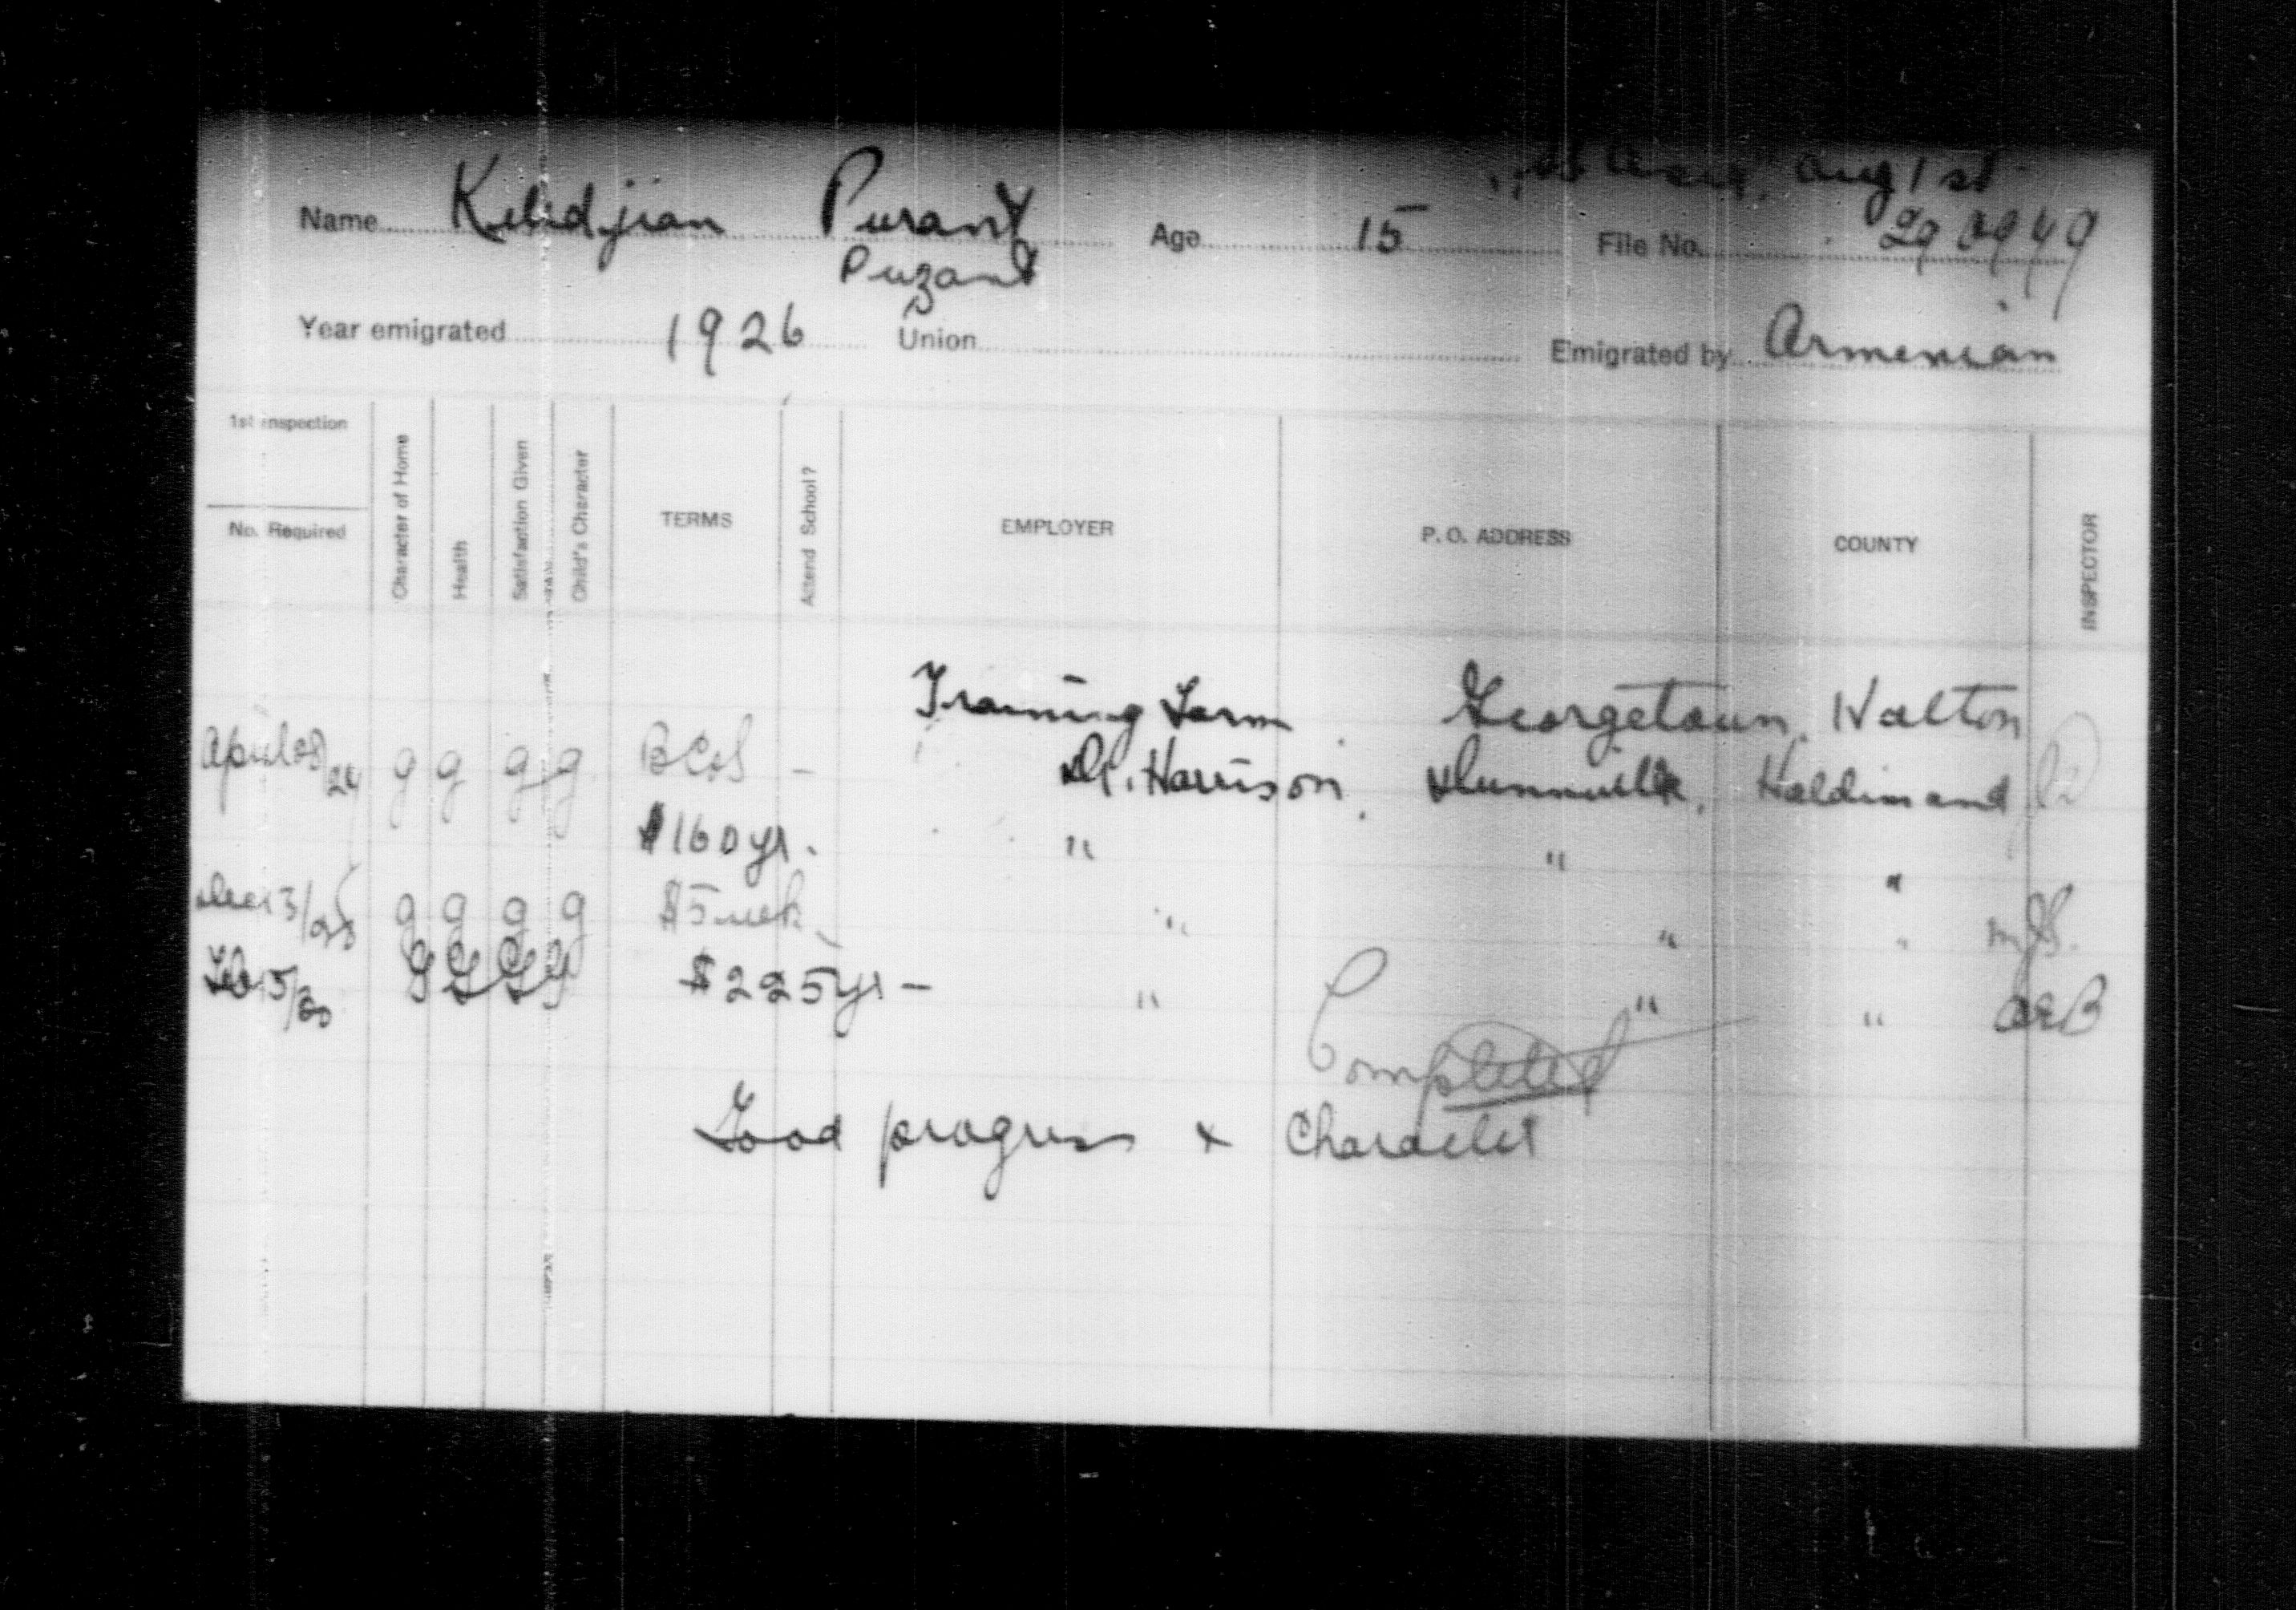 Aug 1st
Name Kelidjian Purant Age 15 File No. 290949
Puzant
Year emigrated 1926 Union Emigrated by Armenian
1st Inspection
No. Required Character of Home Health Satisfaction Given Child's Character TERMS Attend School? EMPLOYER P. O. ADDRESS COUNTY INSPECTOR
Training Farm Georgetown, Halton
April 28 g g g g – D. Harrison, Dunnville, Haldimand
$160 yr. " " "
Dec 13/28 g g g g $5 wk " " "
Feb 5/30 G G G G $225 yr – " " "
Completed
Good progress + Character